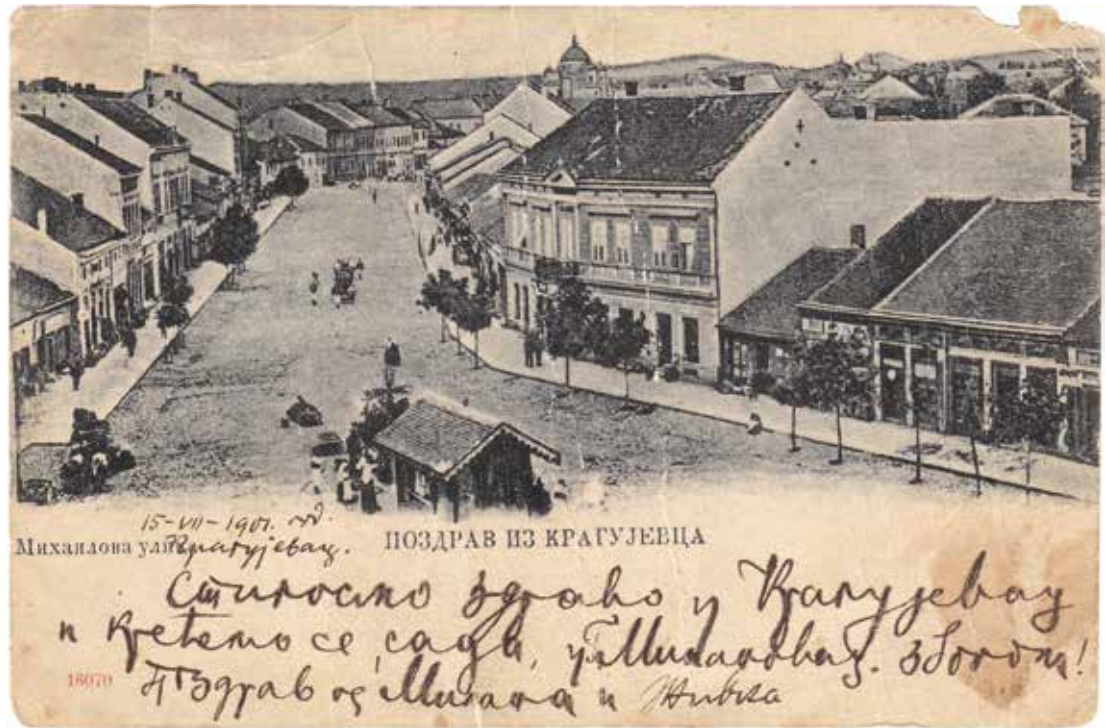 15-VII-1901. год.
Михаилова улица Крагујевац. ПОЗДРАВ ИЗ КРАГУЈЕВЦА
Стигосмо здраво у Крагујевац
и крећемо се сада, у Г. Милановац. Збогом!
16070 Поздрав од Милана и